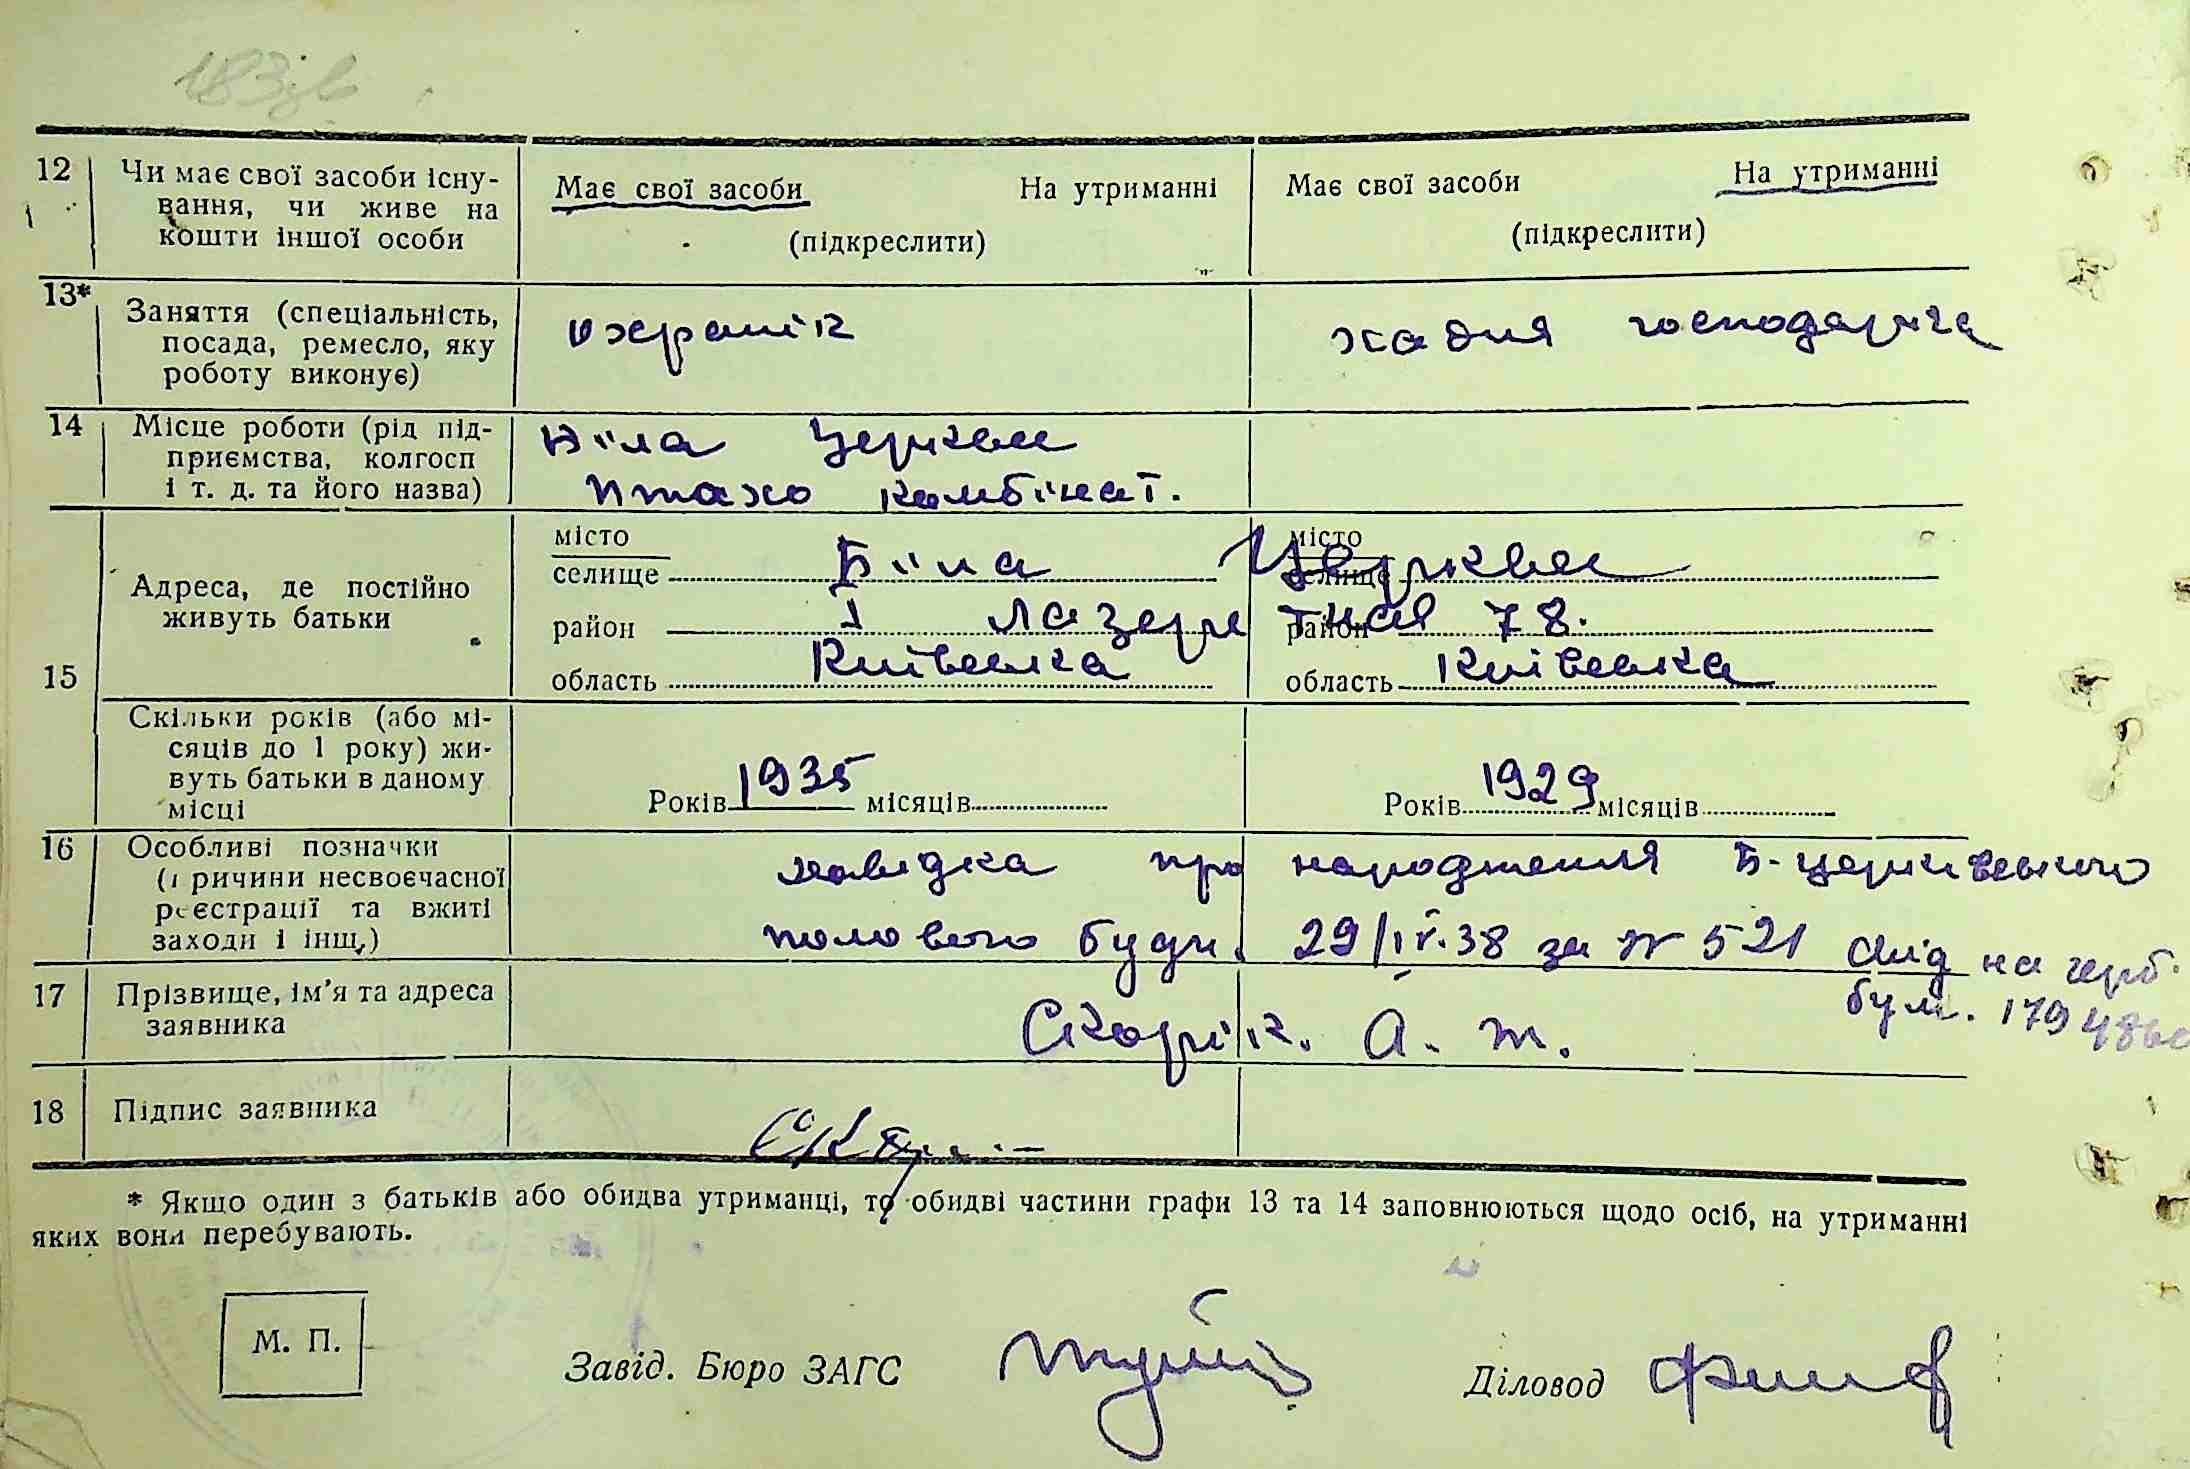 183зв
12 Чи має свої засоби існу-
вання, чи живе на
кошти іншої особи
Має свої засоби На утриманні
(підкреслити)
Має свої засоби На утриманні
(підкреслити)
13* Заняття (спеціальність,
посада, ремесло, яку
роботу виконує)
охранік
хадня господарка
14 Місце роботи (рід під-
приємства, колгосп
і т. д. та його назва)
Біла Церква
птахо комбінат.
15
Адреса, де постійно
живуть батьки
місто
селище Біла Церква
місто
селище
район І Лазеретная 78.
район
область Київська
область Київська
Скільки років (або мі-
сяців до 1 року) жи-
вуть батьки в даному
місці
Років 1935 місяців
Років 1929 місяців
16 Особливі позначки
(причини несвоєчасної
реєстрації та вжиті
заходи і інш.)
довідка про народження Б-церківського
полового буди. 29/IV.38 за № 521 на герб.
бум. 179
17 Прізвище, ім’я та адреса
заявника
Скорік. А. т.
18 Підпис заявника
* Якщо один з батьків або обидва утриманці, то обидві частини графи 13 та 14 заповнюються щодо осіб, на утриманні
яких вони перебувають.
М. П.
Завід. Бюро ЗАГС
Діловод